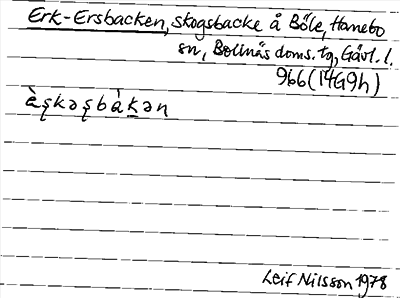 Erk-Ersbacken, skogsbacke å Böle, Hanebo
sn, Bollnäs doms. tg, Gävl. l.
966 (14G9h)
ὰşkəşbὰḵən̥
Leif Nilsson 1978